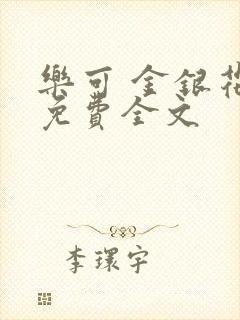 樂可 金銀花
免費全文
李環宇